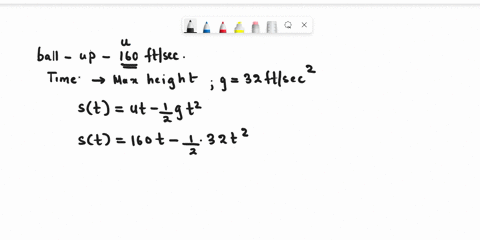 u
ball - up - 160 ft/sec.
Time → Max height ; g = 32 ft/sec²
s(t) = ut - 1/2 gt²
s(t) = 160t - 1/2 · 32t²